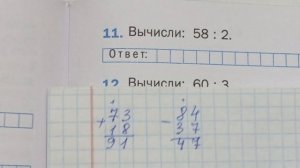 11. Вычисли: 58 : 2.
Ответ:
12. Вычисли: 60 : 3
+ 73 - 84
18 37
91 47